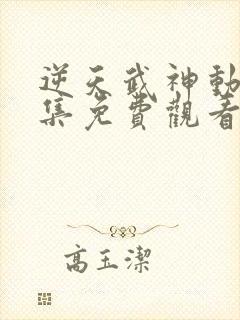 逆天武神動
集免費觀看
高玉潔